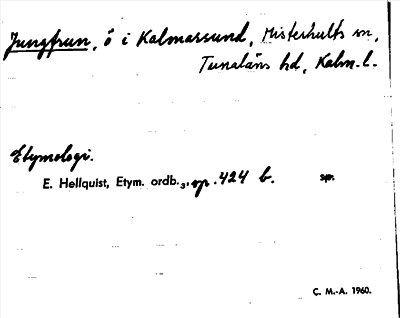 Jungfrun, ö i Kalmarsund, Misterhults sn,
Tunaläns hd, Kalm. l.
Etymologi.
E. Hellquist, Etym. ordb.3, sp. 424 b. sp.
C. M.-A. 1960.